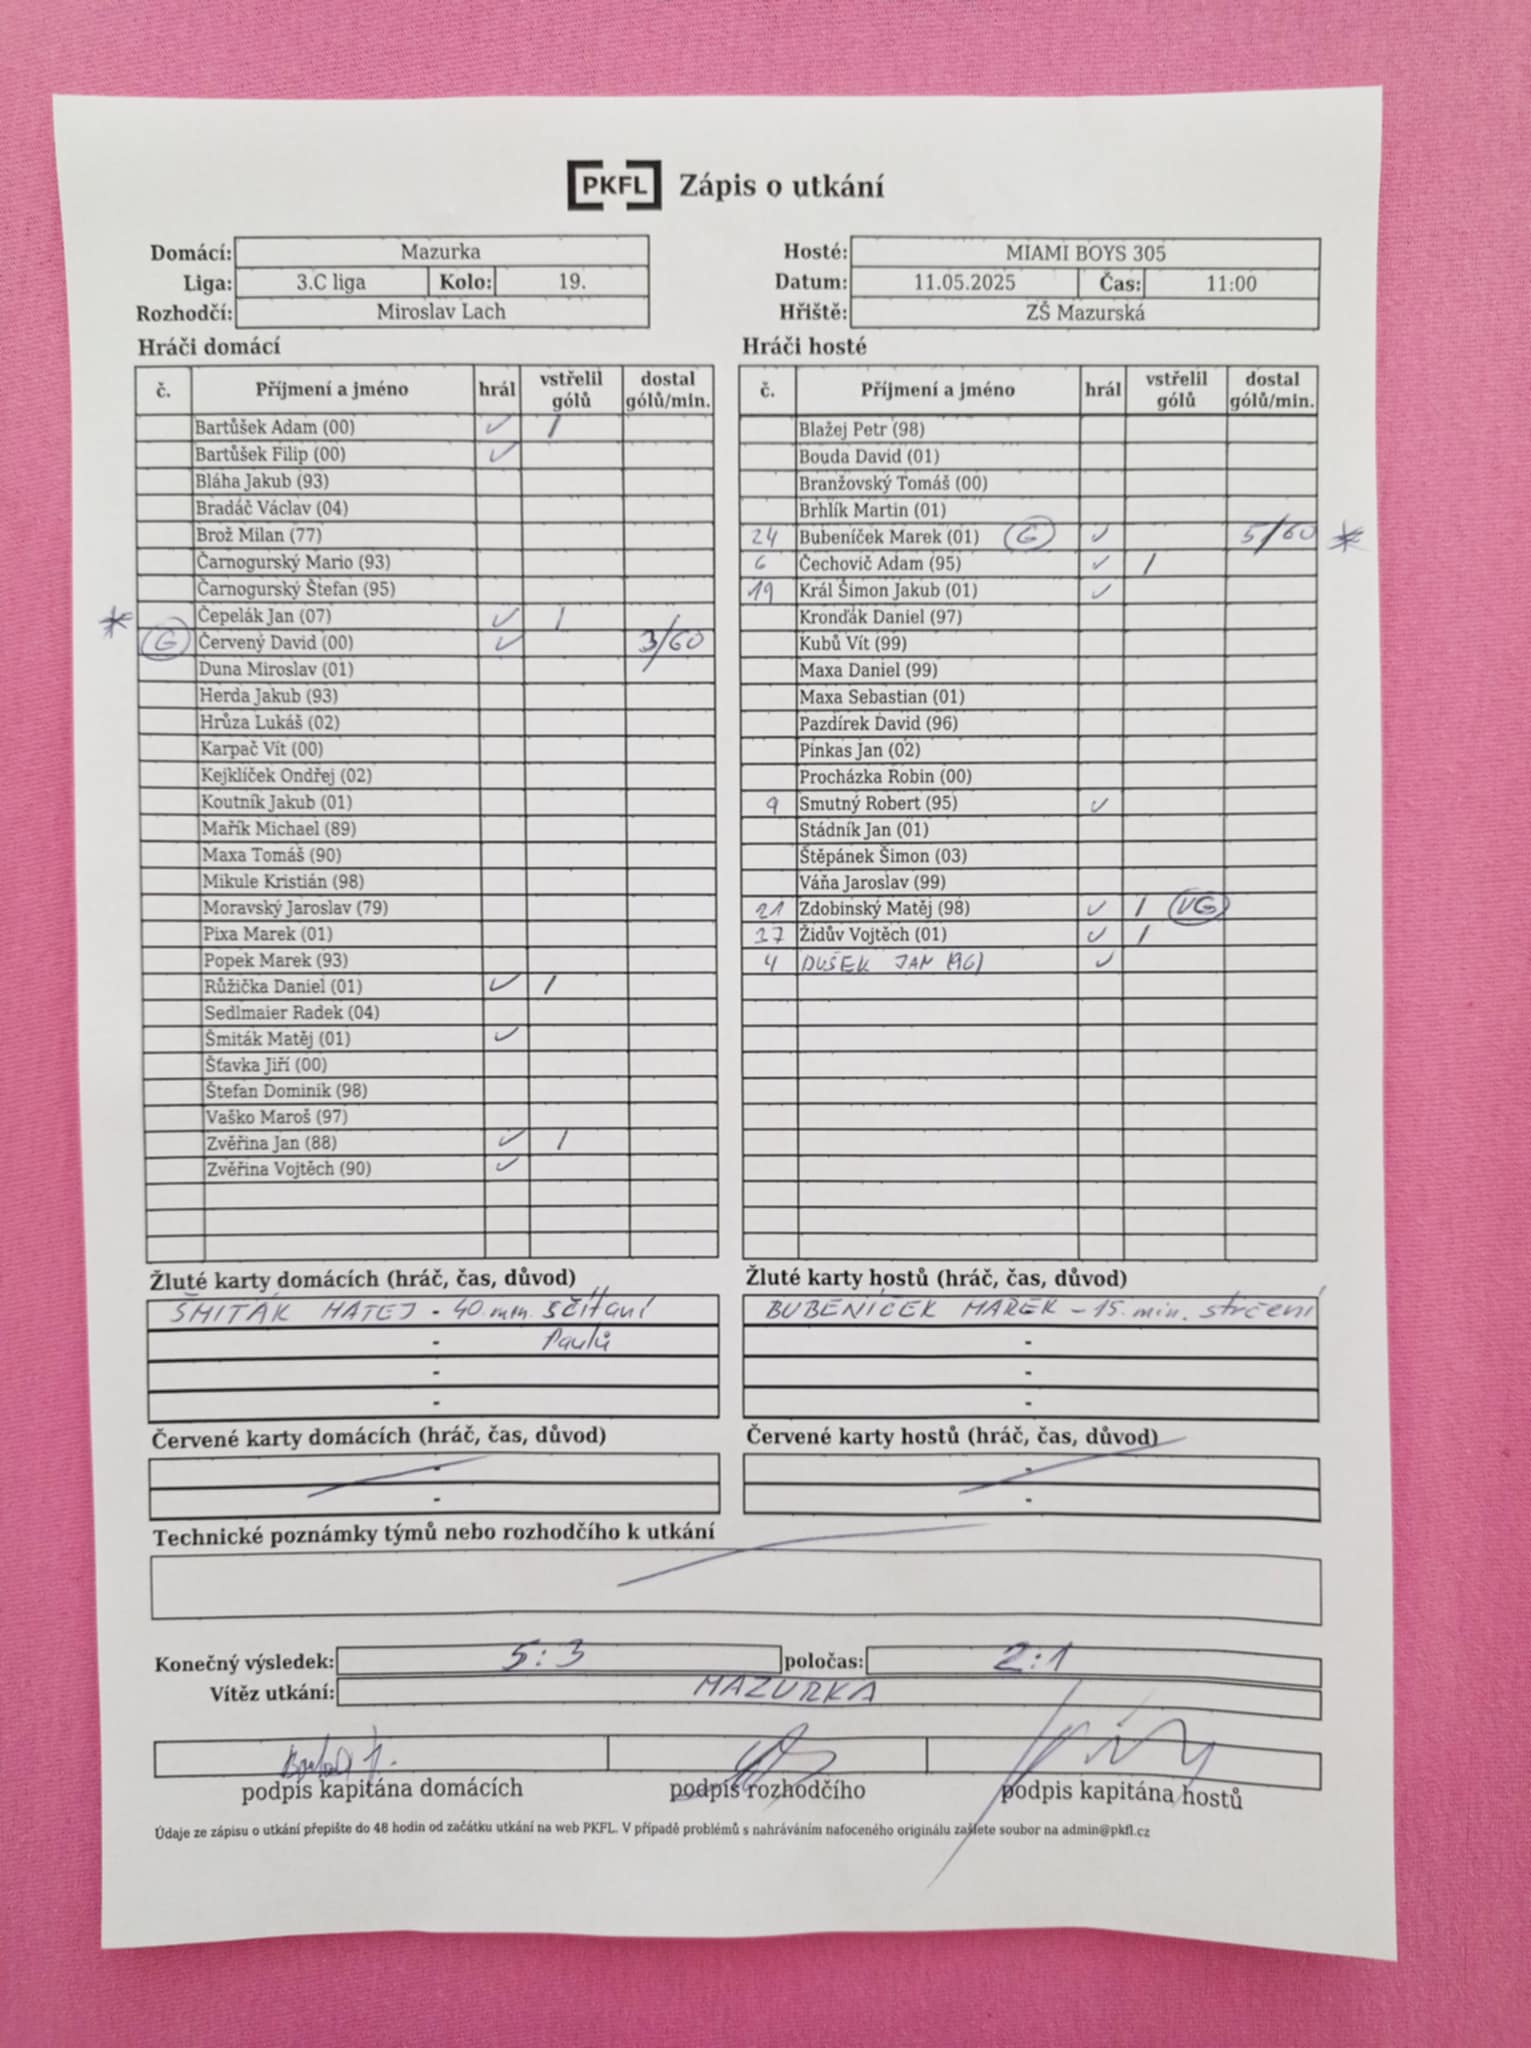 PKFL Zápis o utkání
Domácí: Mazurka
Liga: 3.C liga Kolo: 19.
Rozhodčí: Miroslav Lach
Hosté: MIAMI BOYS 305
Datum: 11.05.2025 Čas: 11:00
Hřiště: ZŠ Mazurská
Hráči domácí
č. Příjmení a jméno hrál vstřelil gólů dostal gólů/min.
Bartůšek Adam (00) ✓ /
Bartůšek Filip (00) ✓
Bláha Jakub (93)
Bradáč Václav (04)
Brož Milan (77)
Čarnogurský Mario (93)
Čarnogurský Štefan (95)
* Čepelák Jan (07) ✓ /
G Červený David (00) ✓ 3/60
Duna Miroslav (01)
Herda Jakub (93)
Hrůza Lukáš (02)
Karpač Vít (00)
Kejklíček Ondřej (02)
Koutník Jakub (01)
Mařík Michael (89)
Maxa Tomáš (90)
Mikule Kristián (98)
Moravský Jaroslav (79)
Pixa Marek (01)
Popek Marek (93)
Růžička Daniel (01) ✓ /
Sedlmaier Radek (04)
Šmiták Matěj (01) ✓
Šťavka Jiří (00)
Štefan Dominik (98)
Vaško Maroš (97)
Zvěřina Jan (88) ✓ /
Zvěřina Vojtěch (90) ✓
Hráči hosté
č. Příjmení a jméno hrál vstřelil gólů dostal gólů/min.
Blažej Petr (98)
Bouda David (01)
Branžovský Tomáš (00)
Brhlík Martin (01)
24 Bubeníček Marek (01) G ✓ 5/60 *
6 Čechovič Adam (95) ✓ /
19 Král Šimon Jakub (01) ✓
Kronďák Daniel (97)
Kubů Vít (99)
Maxa Daniel (99)
Maxa Sebastian (01)
Pazdírek David (96)
Pinkas Jan (02)
Procházka Robin (00)
9 Smutný Robert (95) ✓
Stádník Jan (01)
Štěpánek Šimon (03)
Váňa Jaroslav (99)
21 Zdobinský Matěj (98) ✓ / VG
Židův Vojtěch (01) ✓ /
4 DUŠEK JAN (96) ✓
Žluté karty domácích (hráč, čas, důvod)
ŠMITÁK MATEJ - 40. min. sčítaní
Paulů
-
-
-
Žluté karty hostů (hráč, čas, důvod)
BUBENÍČEK MAREK - 15. min. strčení
-
-
-
Červené karty domácích (hráč, čas, důvod)
-
-
Červené karty hostů (hráč, čas, důvod)
-
-
Technické poznámky týmů nebo rozhodčího k utkání
Konečný výsledek: 5:3 poločas: 2:1
Vítěz utkání: MAZURKA
podpis kapitána domácích podpis rozhodčího podpis kapitána hostů
Údaje ze zápisu o utkání přepište do 48 hodin od začátku utkání na web PKFL. V případě problémů s nahráváním nafoceného originálu zašlete soubor na admin@pkfl.cz